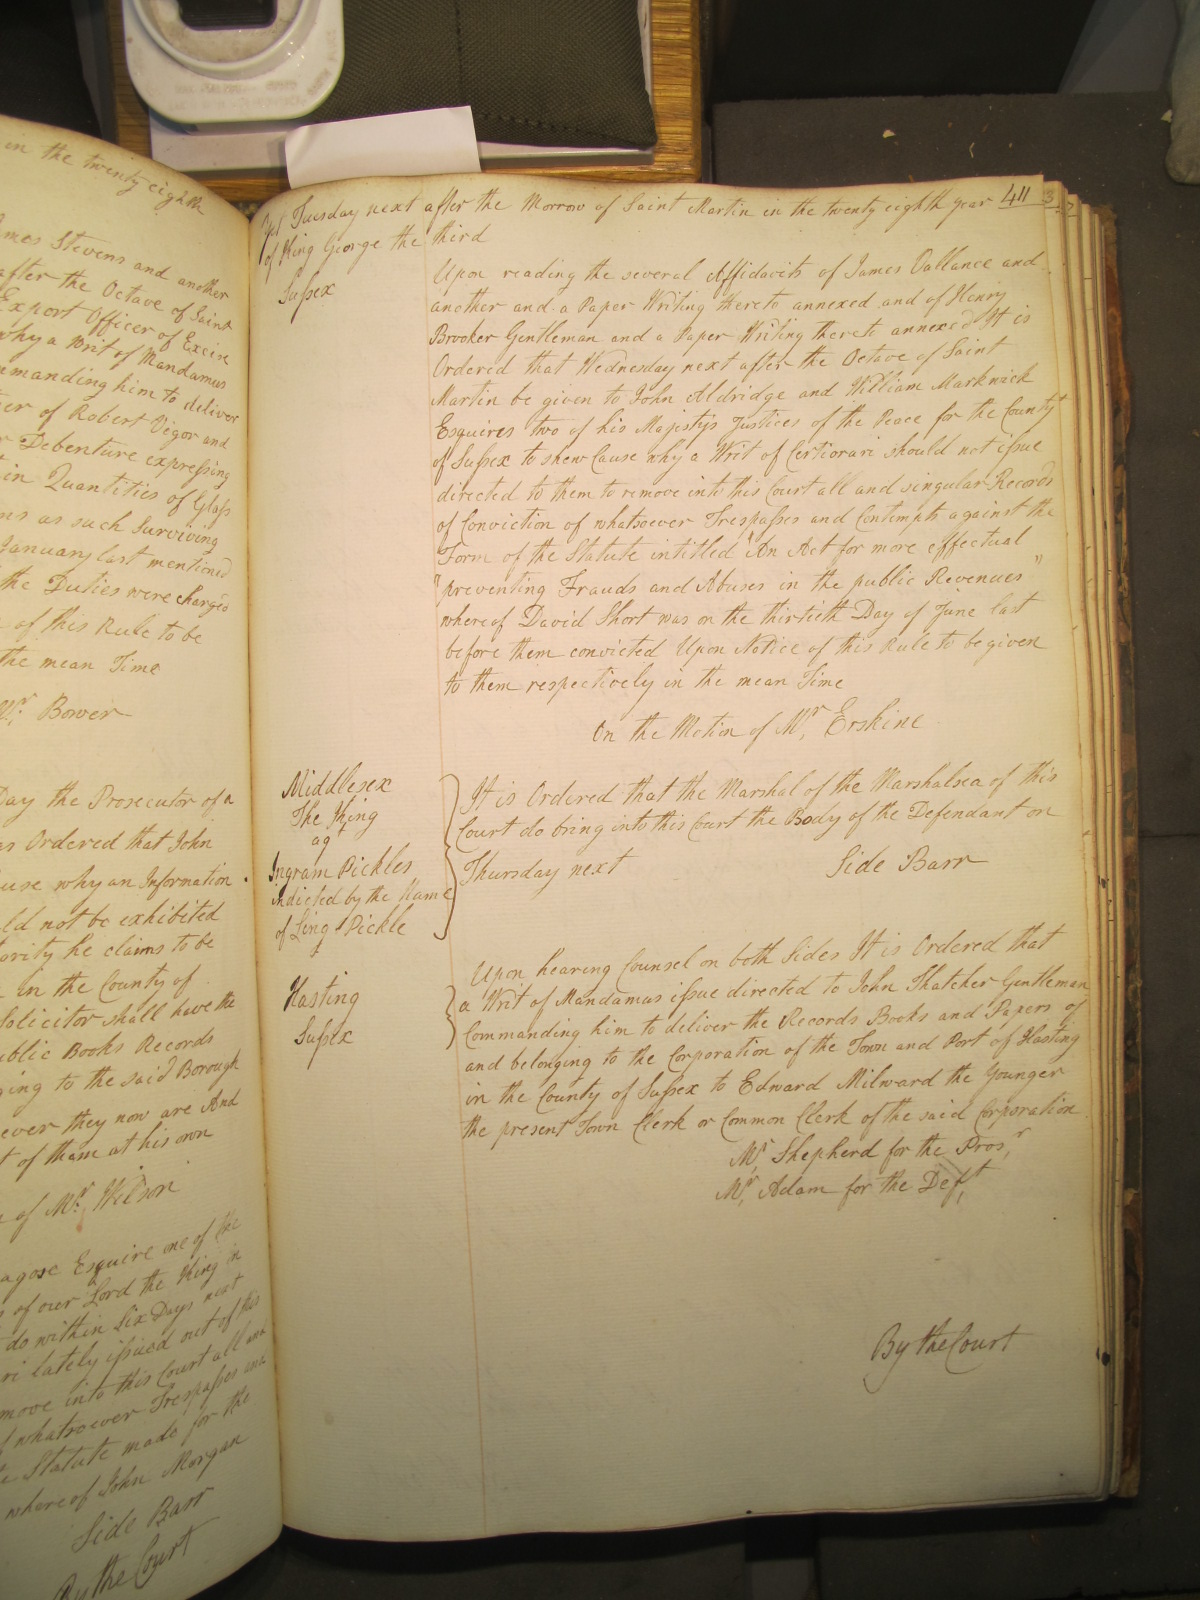 in the twenty eighth
mes Stevens and another
after the Octave of Saint
Export Officer of Excise
why a Writ of Mandamus
mmanding him to deliver
er of Robert Vigor and
r Debenture expressing
in Quantities of Glass
ns as such Surviving
January last mentioned
the Duties were charged
of this Rule to be
the mean Time
Mr. Bower
Day the Prosecutor of a
as Ordered that John
use why an Information
ld not be exhibited
ority he claims to be
in the County of
Solicitor shall have the
ublic Books Records
ging to the said Borough
ever they now are And
t of them at his own
of Mr. Wilson
agose Esquire one of the
s of our Lord the King in
do within Six Days next
ri lately issued out of this
move into this Court all and
f whatsoever Trespasses and
e Statute made for the
whereof John Morgan
Side Barr
By the Court
Yet Tuesday next after the Morrow of Saint Martin in the twenty eighth year 411
of King George the third
Sussex
Upon reading the several Affidavits of James Vallance and
another and a Paper Writing thereto annexed and of Henry
Brooker Gentleman and a Paper Writing thereto annexed It is
Ordered that Wednesday next after the Octave of Saint
Martin be given to John Aldridge and William Markwick
Esquires two of his Majestys Justices of the Peace for the County
of Sussex to shew Cause why a Writ of Certiorari should not issue
directed to them to remove into this Court all and singular Records
of Conviction of whatsoever Trespasses and Contempts against the
Form of the Statute intitled "An Act for more effectual
"preventing Frauds and Abuses in the public Revenues"
whereof David Short was on the thirtieth Day of June last
before them convicted Upon Notice of this Rule to be given
to them respectively in the mean Time
On the Motion of Mr. Erskine
Middlesex
The King
agt
Ingram Pickles
indicted by the Name
of Ling Pickle
It is Ordered that the Marshal of the Marshalsea of this
Court do bring into this Court the Body of the Defendant on
Thursday next Side Barr
Hasting
Sussex
Upon hearing Counsel on both Sides It is Ordered that
a Writ of Mandamus issue directed to John Thatcher Gentleman
Commanding him to deliver the Records Books and Papers of
and belonging to the Corporation of the Town and Port of Hasting
in the County of Sussex to Edward Milward the Younger
the present Town Clerk or Common Clerk of the said Corporation
Mr. Shepherd for the Prosr.
Mr. Adam for the Deft.
By the Court